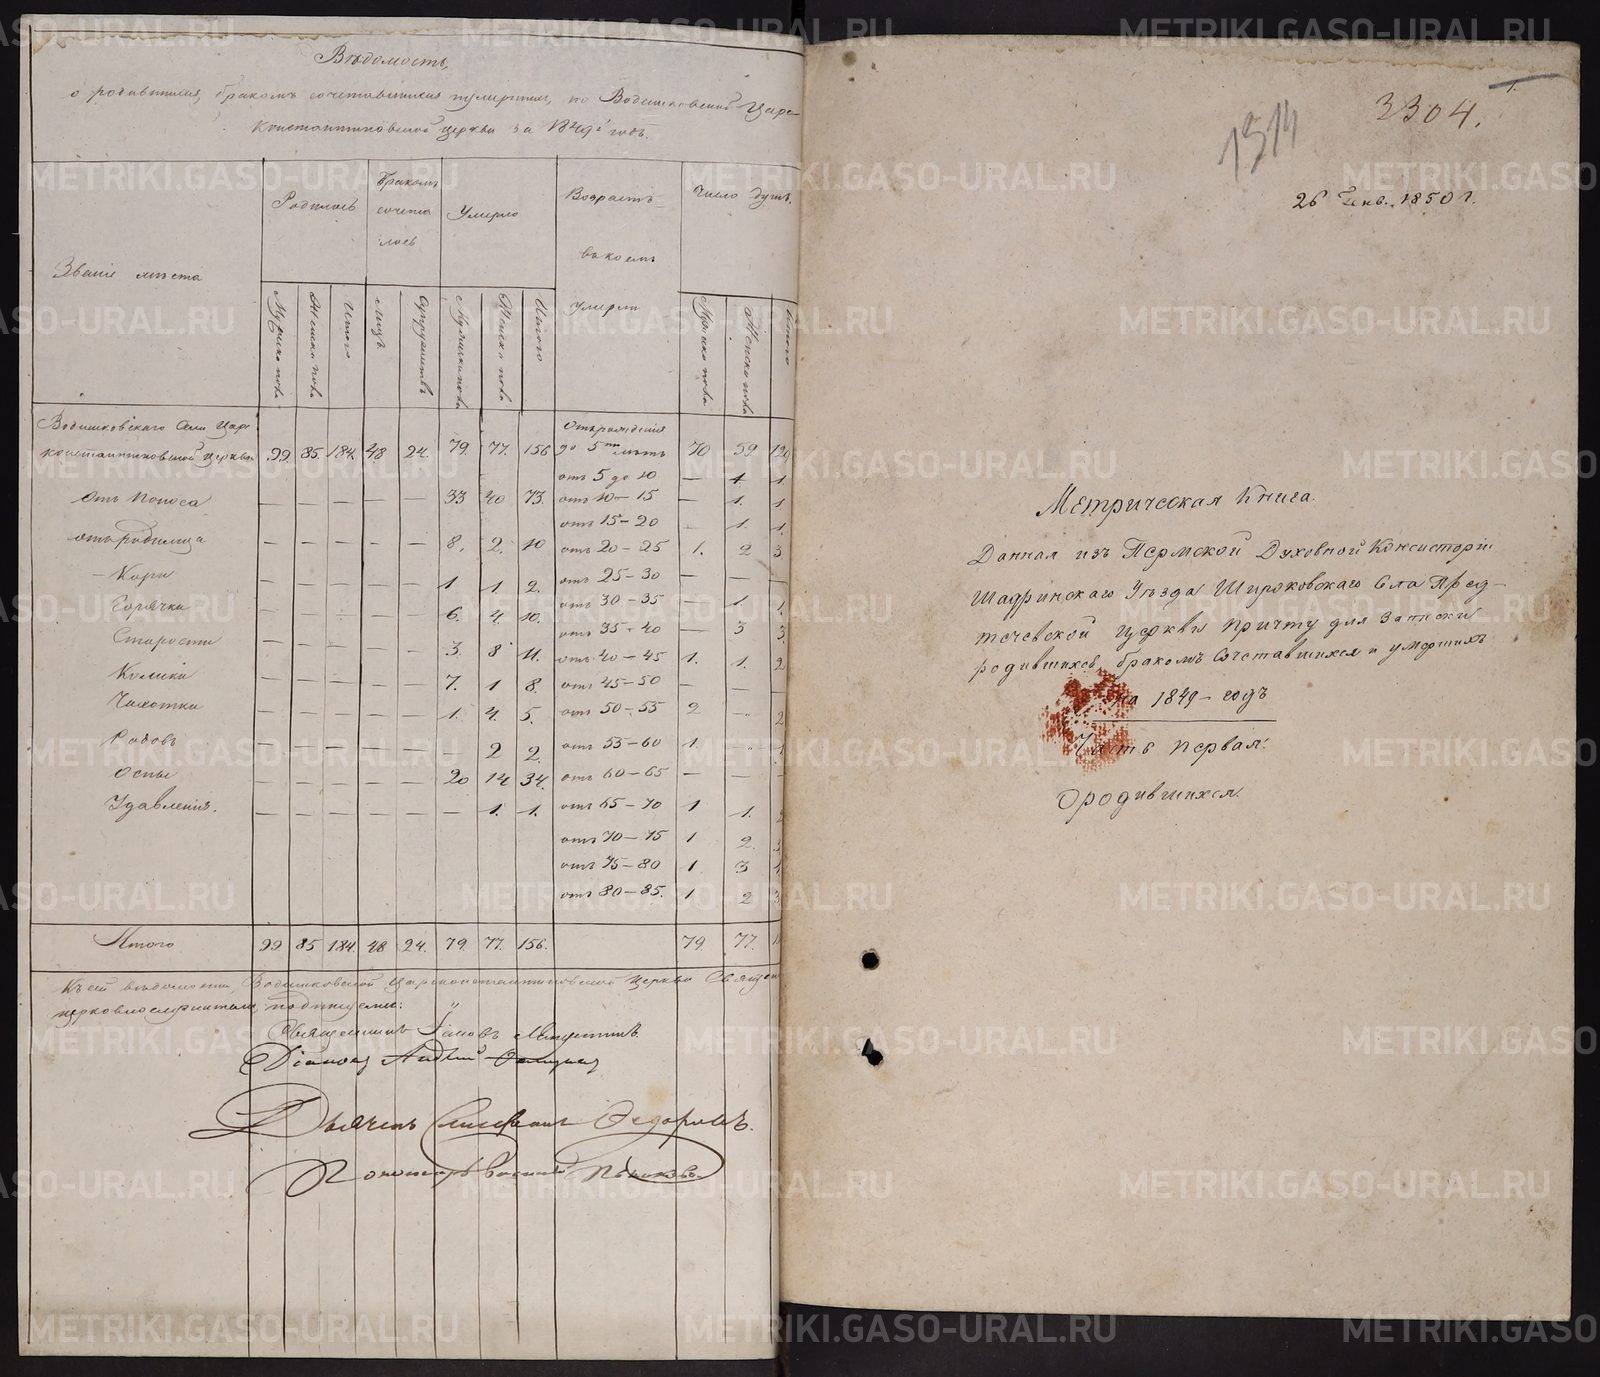 Вѣдомость,
о родившихся, бракомъ сочетавшихся и умершихъ, по Водениковской Царе-
константиновской церкви за 1849й годъ.
Званіе мѣста
Родилось
Бракомъ
сочета
лось
Умерло
Возрастъ
въ коемъ
умерли
Число душъ.
Мужеска пола
Женска пола
Итого
Лицъ
Супружествъ
Мужеска пола
Женска пола
Итого
Мужеска пола
Женска пола
Итого
Села Царе
константиновской церкви 99 85. 184. 48 24. 79. 77. 156
Отъ рожденія
до 5ти лѣтъ 70 59 129
отъ 5 до 10 — 1. 1
Отъ поноса — — — — — 33 40 73. отъ 10 — 15 — 1. 1
отъ 15 — 20 — 1. 1.
отъ родимца — — — — — 8. 2. 10 отъ 20 — 25 1. 2 3
— Кори — — — — — 1 1 2. отъ 25 — 30 — — —
Горячки — — — — — 6. 4. 10. отъ 30 — 35 — 1. 1.
Старости — — — — — 3. 8 11. отъ 35 - 40 — 3 3
отъ 40 — 45 1. 1. 2
Колики — — — — — 7. 1 8. отъ 45 — 50 — — —
Чахотки — — — — — 1. 4. 5. отъ 50 — 55 2 — 2
Родовъ — — — — — 2 2. отъ 55 — 60 1. 1.
Оспы — — — — — 20 14 34. отъ 60 — 65 — — —
Удавленія. — — — — — — 1. 1. отъ 65 — 70 1 1. 2
отъ 70 — 75 1 2. 3
отъ 75 — 80 1 3 4
отъ 80 — 85. 1 2 3
Итого 99 85 184. 48 24. 79. 77. 156. 79. 77.
Къ сей вѣдомости, Царекоконстантиновской церкви Священно
церковнослужители, подписуемъ:
Священникъ
Діаконъ Андрей
Дьячекъ Федоровъ.
Пономарь Василій
1.
1514
3304.
26 Генв. 1850 г.
Метрическая Книга.
Данная изъ Пермской Духовной Консисторіи
Шадринскаго Уѣзда Широковскаго Села Пред-
течевской Церкви причту для записки
родившихся, бракомъ сочетавшихся и умершихъ
на 1849 — годъ
Часть первая:
О родившихся.
METRIKI.GASO-URAL.RU